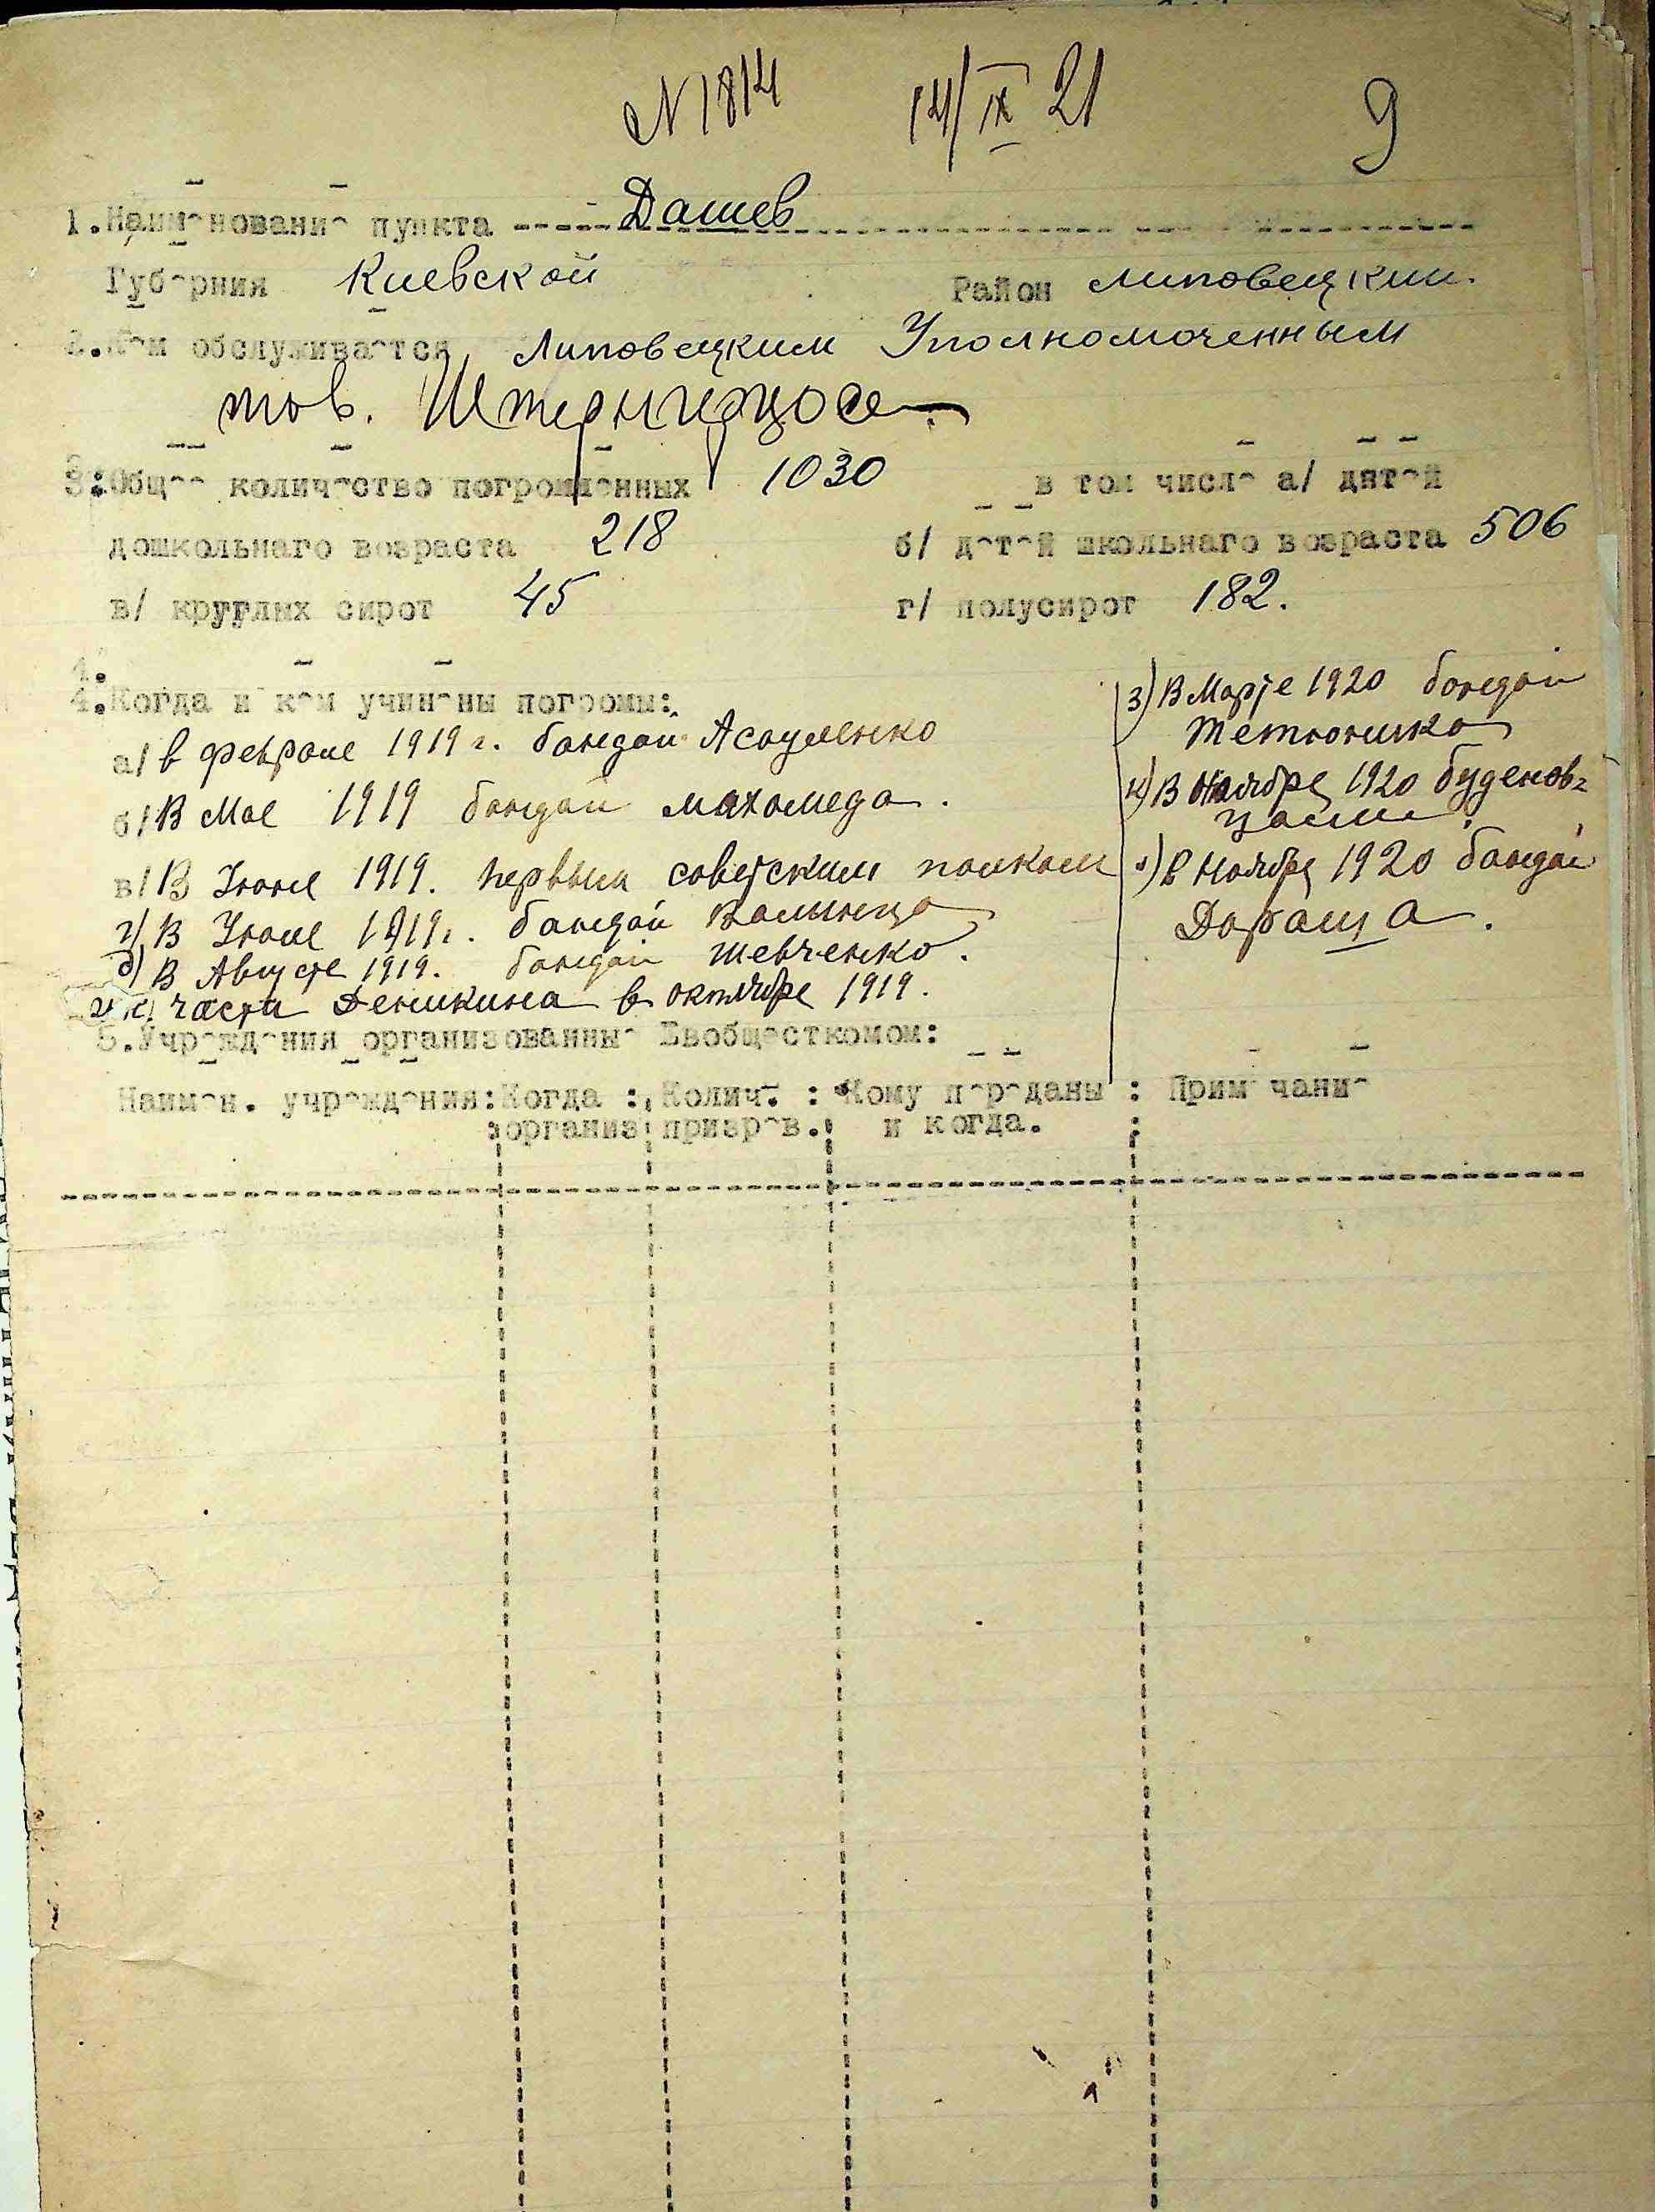 № 1814 14/IX 21 9
1. Наименование пункта Дашев
Губерния Киевской Район Липовецкий.
2. Кем обслуживается Липовецким Уполномоченным
тов.
3. Общее количество погромленных 1030 в том числе а/ дятей
дошкольнаго возраста 218 б/ детей школьнаго возраста 506
в/ круглых сирот 45 г/ полусирот 182.
4. Когда и кем учинены погромы:
а/ в феврале 1919 г. бандой Асауленко
б/ В Мае 1919 бандой махомеда.
в/ В Июне 1919. первым советским полком
г) В Июле 1919 г. бандой Волынца
д) В Августе 1919. бандой Шевченко.
части Деникина в октябре 1919.
3) В Марте 1920 бандой
Тютюника
4) В Ноябре 1920 буденов-
цами.
в ноябре 1920 бандой
Дораща.
5. Учреждения организованные Евобщесткомом:
Наимен. учреждения: Когда : Колич. : Кому переданы : Примечание
: организ призрев. и когда. :